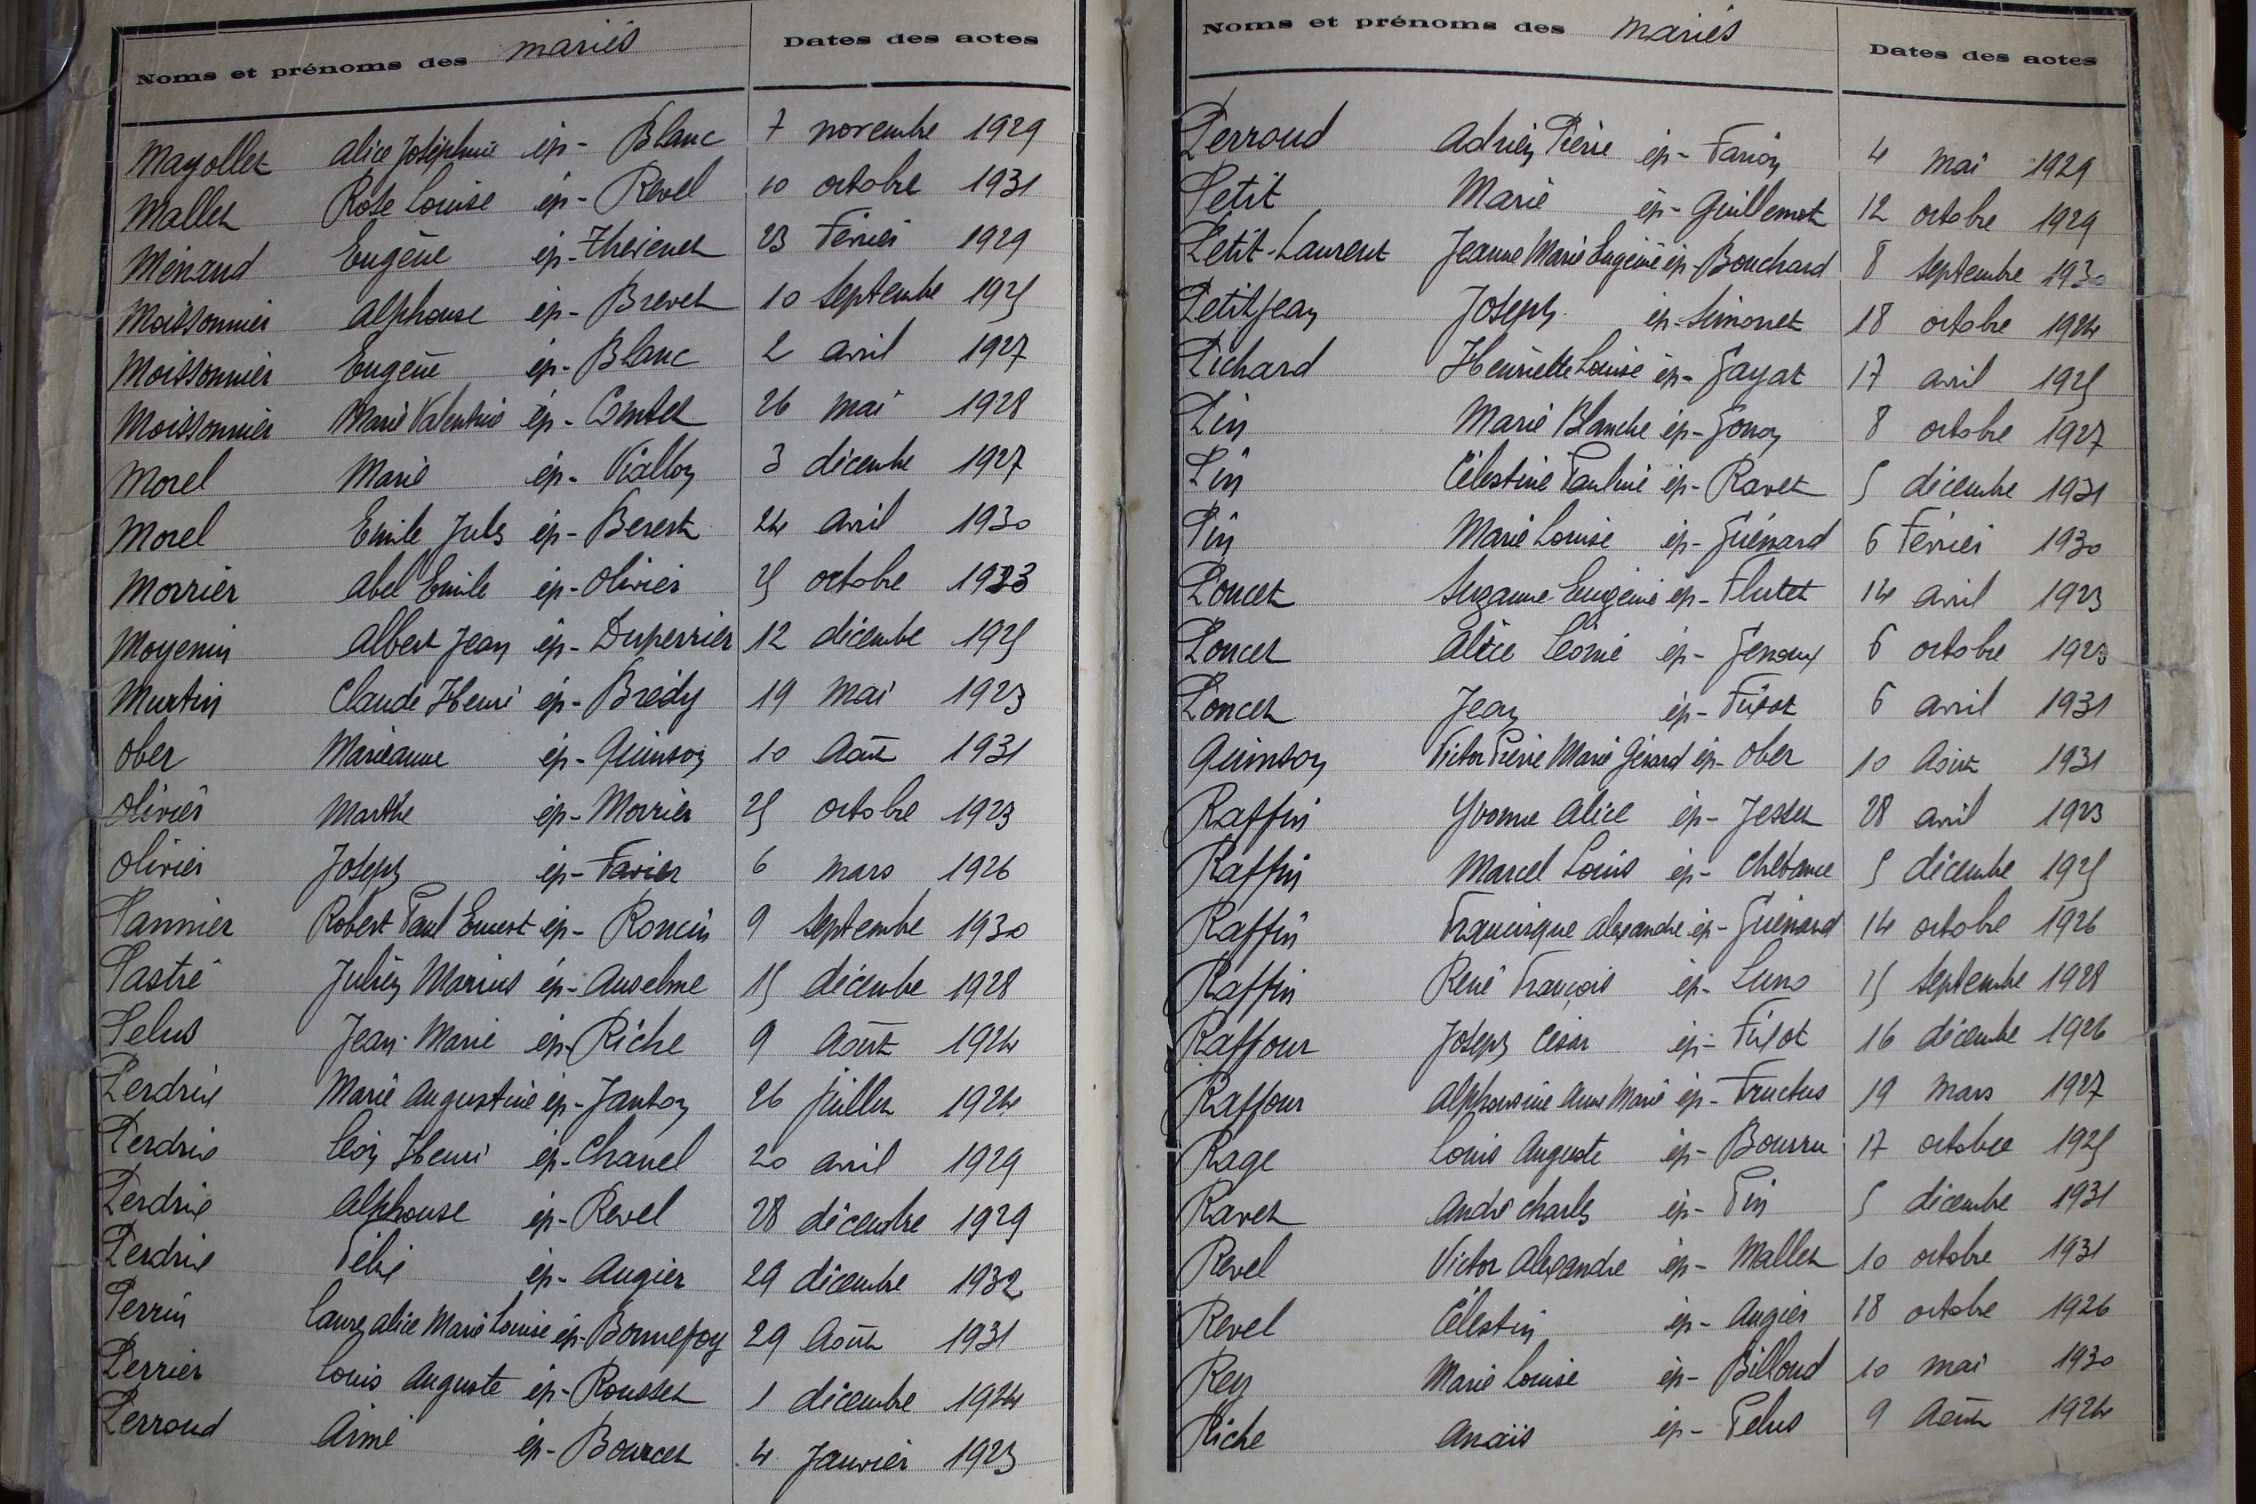 Noms et prénoms des mariés Dates des actes
Mayollet Alice Joséphine ép- Blanc 7 novembre 1929
Mallet Rose Louise ép- Revel 10 octobre 1931
Ménand Eugène ép- Thevenet 23 Février 1929
Moissonnier Alphonse ép- Brevet 10 septembre 1925
Moissonnier Eugène ép- Blanc 2 avril 1927
Moissonnier Marie Valentine ép- Comtet 26 mai 1928
Morel Marie ép- Viallon 3 décembre 1927
Morel Emile Jules ép- Berest 24 avril 1930
Morrier Abel Emile ép- Olivier 25 octobre 1923
Moyenin Albert Jean ép- Duperrier 12 décembre 1925
Murtin Claude Henri ép- Brédy 19 mai 1923
Ober Marieanne ép- Quinson 10 Août 1931
Olivier Marthe ép- Morrier 25 octobre 1923
Olivier Joseph ép- Favier 6 mars 1926
Pannier Robert Paul Ernest ép- Roncin 9 septembre 1930
Pastré Julien Marius ép- Anselme 15 décembre 1928
Pelus Jean-Marie ép- Riche 9 Août 1924
Perdrix Marie Augustine ép- Janton 26 juillet 1924
Perdrix Léon Henri ép- Chanel 20 avril 1929
Perdrix Alphonse ép- Revel 28 décembre 1929
Perdrix Félix ép- Augier 29 décembre 1932
Perrin Alice Marie Louise ép- Bonnefoy 29 Août 1931
Perrier Louis Auguste ép- Rousset 1 décembre 1924
Perroud Aimé ép- Bourcet 4 Janvier 1923
Noms et prénoms des mariés Dates des actes
Perroud Adrien Pierre ép- Farion 4 mai 1929
Petit Marie ép- Guillemot 12 octobre 1929
Petit-Laurent Jeanne Marie Eugénie ép- Bouchard 8 septembre 1930
Petitjean Joseph ép- Simonet 18 octobre 1924
Pichard Henriette Louise ép- Gayat 17 avril 1925
Pin Marie Blanche ép- Gonon 8 octobre 1927
Pin Célestine Pauline ép- Ravet 5 décembre 1931
Pin Marie Louise ép- Guénard 6 Février 1930
Poncet Suzanne Eugénie ép- Flutet 14 avril 1923
Poncet Alice Léonie ép- Genoux 6 octobre 1923
Poncet Jean ép- Fulot 6 avril 1931
Quinson Victor Pierre Marie Gérard ép- Ober 10 Août 1931
Raffin Yvonne Alice ép- Jesset 28 avril 1923
Raffin Marcel Louis ép- Chebance 5 décembre 1925
Raffin Francisque Alexandre ép- Guénard 14 octobre 1926
Raffin René François ép- Luno 15 septembre 1928
Raffour Joseph César ép- Fulot 16 décembre 1926
Raffour Alphonsine Anne Marie ép- Fructus 19 mars 1927
Rage Louis Auguste ép- Bourru 17 octobre 1925
Ravet André Charles ép- Pin 5 décembre 1931
Revel Victor Alexandre ép- Mallet 10 octobre 1931
Revel Célestin ép- Augier 18 octobre 1926
Rey Marie Louise ép- Billoud 10 mai 1930
Riche Anaïs ép- Pelus 9 Août 1924